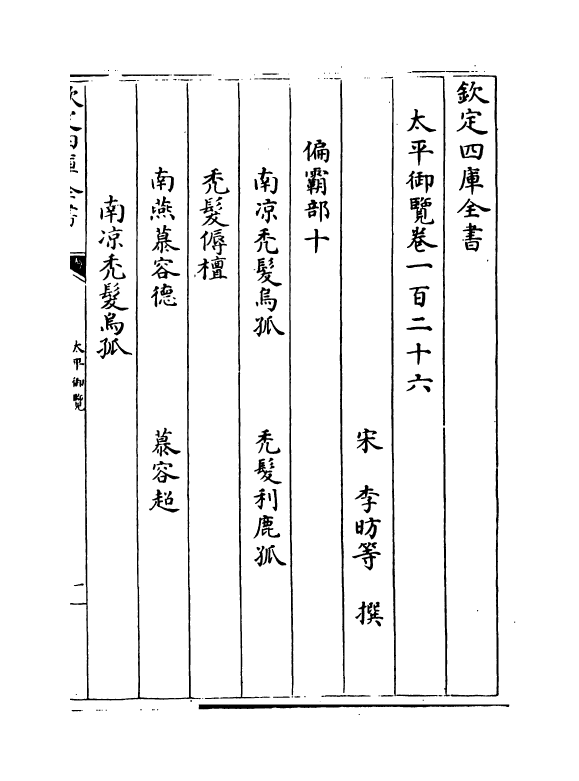 欽定四庫全書
太平御覽卷一百二十六
宋 李昉等 撰
偏霸部十
南凉禿髮烏孤 禿髮利鹿孤
禿髮傉檀
南燕慕容德 慕容超
南凉禿髮烏孤
欽定四庫全書
太平御覽